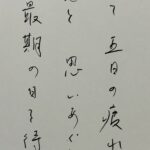 て 五日の疲れ
と 思いあぐ
最期の日を待